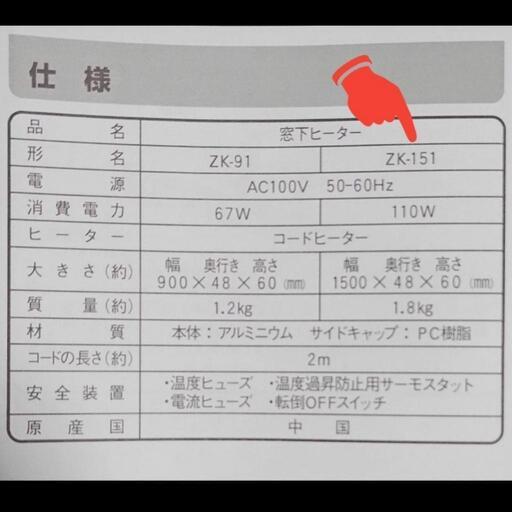 仕様
品名 窓下ヒーター
形名 ZK-91 ZK-151
電源 AC100V 50-60Hz
消費電力 67W 110W
ヒーター コードヒーター
大きさ(約) 幅 奥行き 高さ 900×48×60(mm) 幅 奥行き 高さ 1500×48×60(mm)
質量(約) 1.2kg 1.8kg
材質 本体:アルミニウム サイドキャップ:PC樹脂
コードの長さ(約) 2m
安全装置 ・温度ヒューズ ・温度過昇防止用サーモスタット
・電流ヒューズ ・転倒OFFスイッチ
原産国 中国